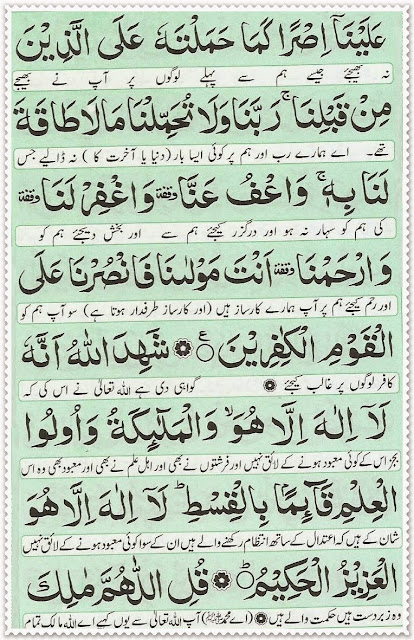 عَلَيْنَآ اِصْرًا كَمَا حَمَلْتَهٗ عَلَى الَّذِيْنَ
نہ بھیجئے جیسے ہم سے پہلے لوگوں پر آپ نے بھیجے
مِنْ قَبْلِنَا ۚ رَبَّنَا وَلَا تُحَمِّلْنَا مَا لَا طَاقَةَ
تھے۔ اے ہمارے رب اور ہم پر کوئی ایسا بار (دنیا یا آخرت کا) نہ ڈالیے جس
لَنَا بِهٖ ۚ وَاعْفُ عَنَّا وقفة وَاغْفِرْ لَنَا وقفة
کی ہم کو سہار نہ ہو اور درگزر کیجئے ہم سے اور بخش دیجئے ہم کو
وَارْحَمْنَا وقفة اَنْتَ مَوْلٰىنَا فَانْصُرْنَا عَلَى
اور رحم کیجئے ہم پر آپ ہمارے کارساز ہیں (اور کارساز طرفدار ہوتا ہے) سو آپ ہم کو
الْقَوْمِ الْكٰفِرِيْنَ ۧ شَهِدَ اللّٰهُ اَنَّهٗ
کافر لوگوں پر غالب کیجئے گواہی دی ہے اللہ تعالٰی نے اس کی کہ
لَآ اِلٰهَ اِلَّا هُوَ ۙ وَالْمَلٰٓئِكَةُ وَاُولُوا
بجز اس کے کوئی معبود ہونے کے لائق نہیں اور فرشتوں نے بھی اور اہل علم نے بھی اور معبود بھی وہ اس
الْعِلْمِ قَآئِمًۢا بِالْقِسْطِ ؕ لَآ اِلٰهَ اِلَّا هُوَ
شان کے ہیں کہ اعتدال کے ساتھ انتظام رکھنے والے ہیں ان کے سوا کوئی معبود ہونے کے لائق نہیں
الْعَزِيْزُ الْحَكِيْمُ ؕ قُلِ اللّٰهُمَّ مٰلِكَ
وہ زبردست ہیں حکمت والے ہیں (اے محمد ﷺ) آپ اللہ تعالٰی سے یوں کہیے اے اللہ مالک تمام